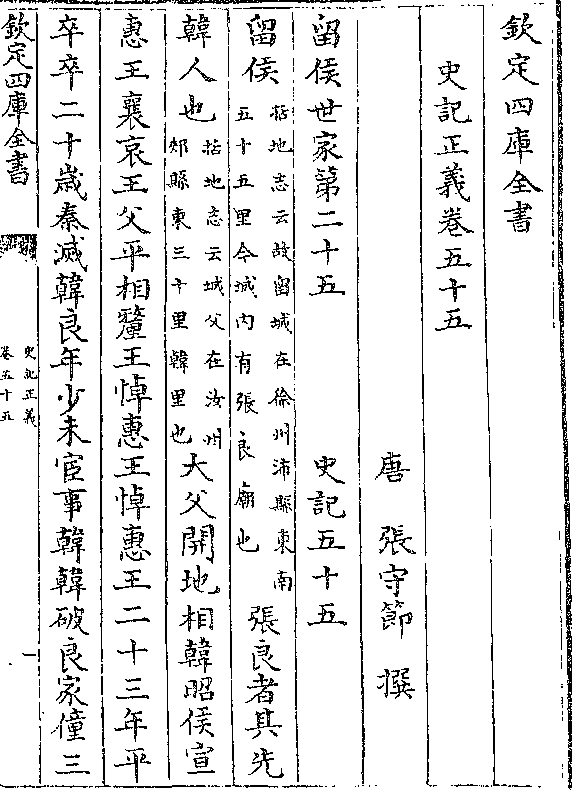 欽定四庫全書
史記正義卷五十五
唐 張守節 撰
留侯世家第二十五 史記五十五
留侯括地志云故留城在徐州沛縣東南五十五里今城内有張良廟也張良者其先
韓人也括地志云城父在汝州郏縣東三十里韓里也大父開地相韓昭侯宣
惠王襄哀王父平相釐王悼惠王悼惠王二十三年平
卒卒二十歲秦滅韓良年少未宦事韓韓破良家僮三
欽定四庫全書
史記正義
卷五十五
一